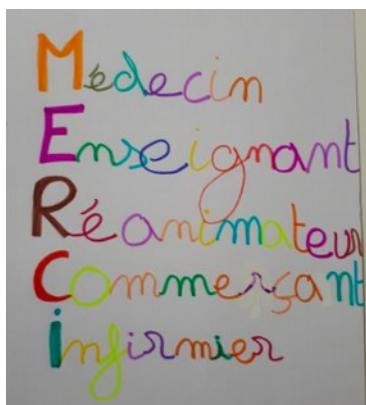 Médecin
Enseignant
Réanimateur
Commerçant
infirmier